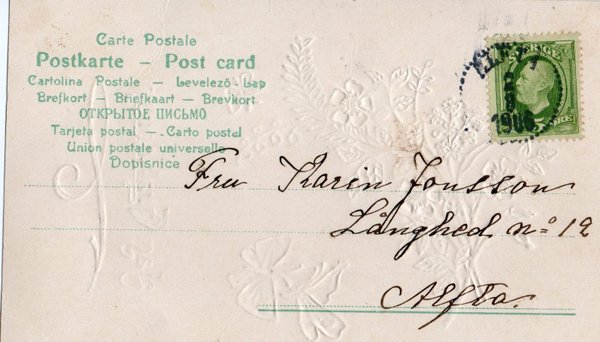 Carte Postale
Postkarte – Post card
Cartolina Postale – Levelező-Lap
Brefkort – Briefkaart – Brevkort
ОТКРЫТОЕ ПИСЬМО
Tarjeta postal – Carto postel
Union postale universelle
Dopisnice
SVERIGE
1906
ÖRE
Fru Karin Jonsson
Långhed no 12
Alfta.